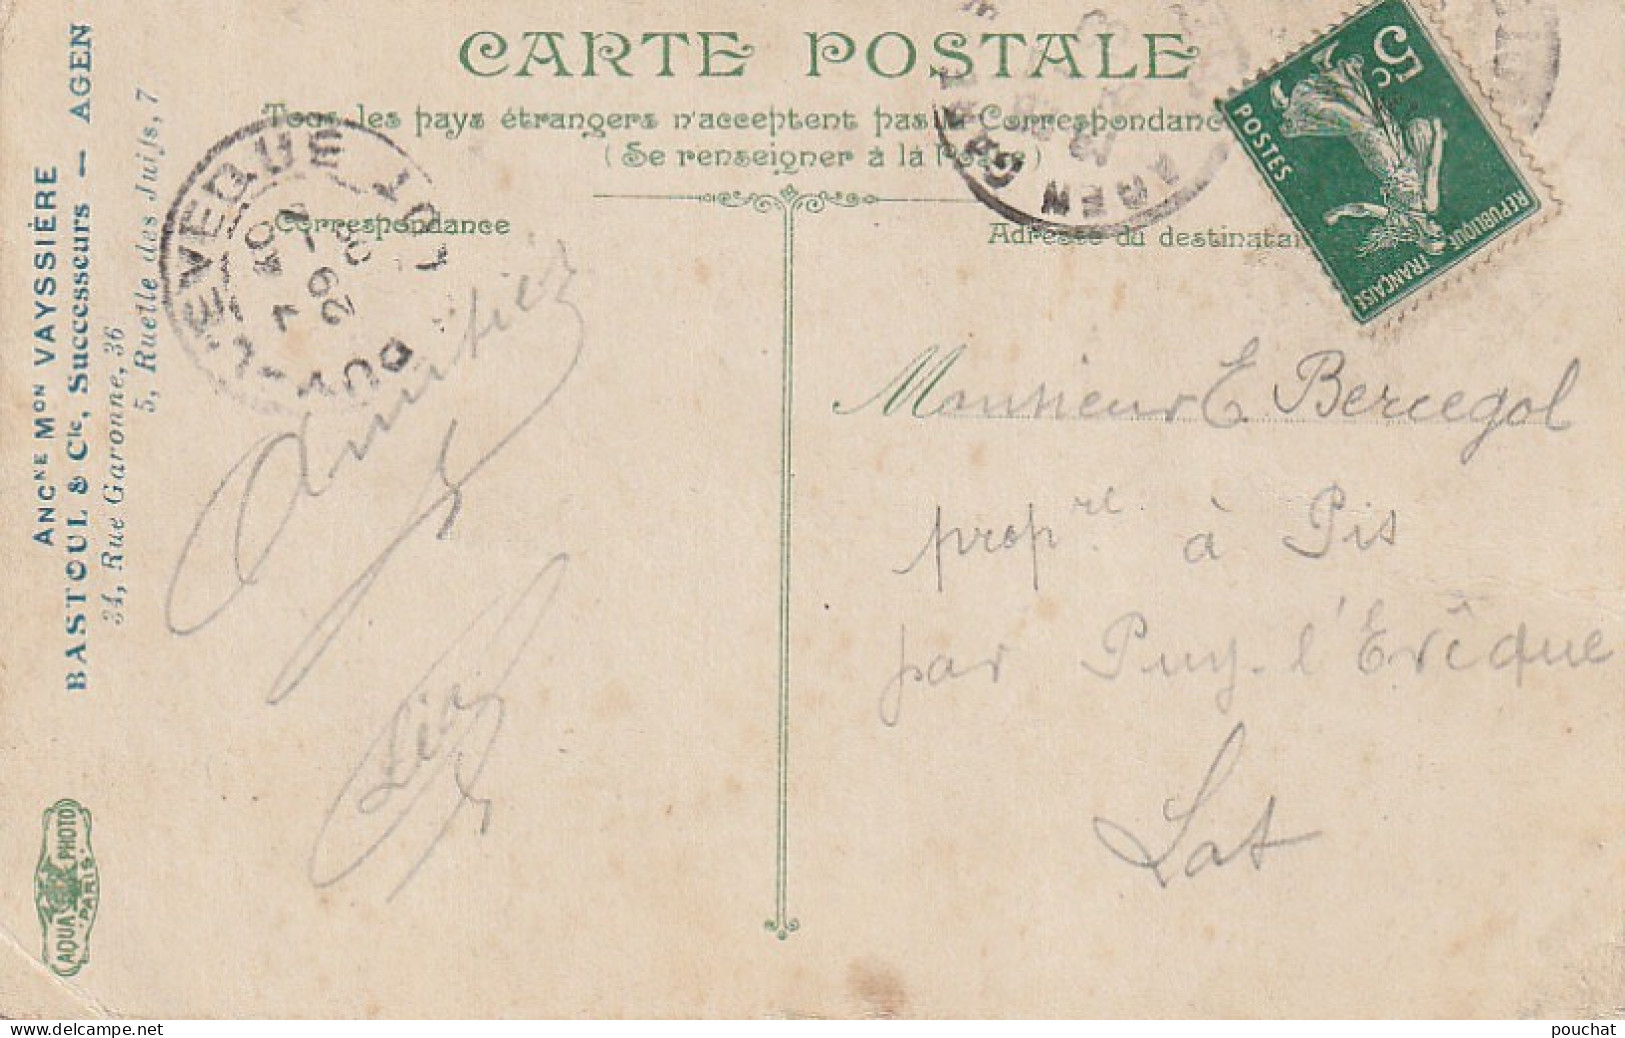 CARTE POSTALE
Tous les pays étrangers n'acceptent pas la Correspondance
(Se renseigner à la Poste)
Correspondance
Adresse du destinataire
5c
POSTES
REPUBLIQUE FRANÇAISE
AGEN GARE
PUY-L'EVEQUE LOT
7 40
29
ANCNE MON VAYSSIÈRE
BASTOUL & Cie, Successeurs — AGEN
34, Rue Garonne, 36
5, Ruelle des Juifs, 7
AQUA PHOTO
PARIS
Amitiés
Léa
Monsieur E Bercegol
propre à Pis
par Puy-l'Evêque
Lot
www.delcampe.net
pouchat